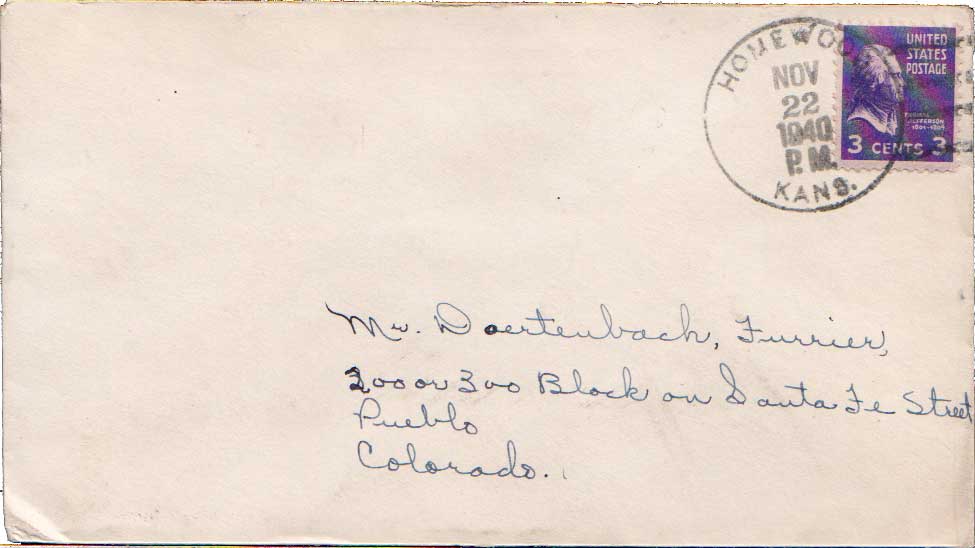 HOMEWOOD
NOV
22
1940
P.M.
KANS.
UNITED
STATES
POSTAGE
JEFFERSON
1801-1809
3 CENTS 3
Mr. Doertenbach, Furrier,
200 or 300 Block on Santa Fe Street
Pueblo
Colorado.